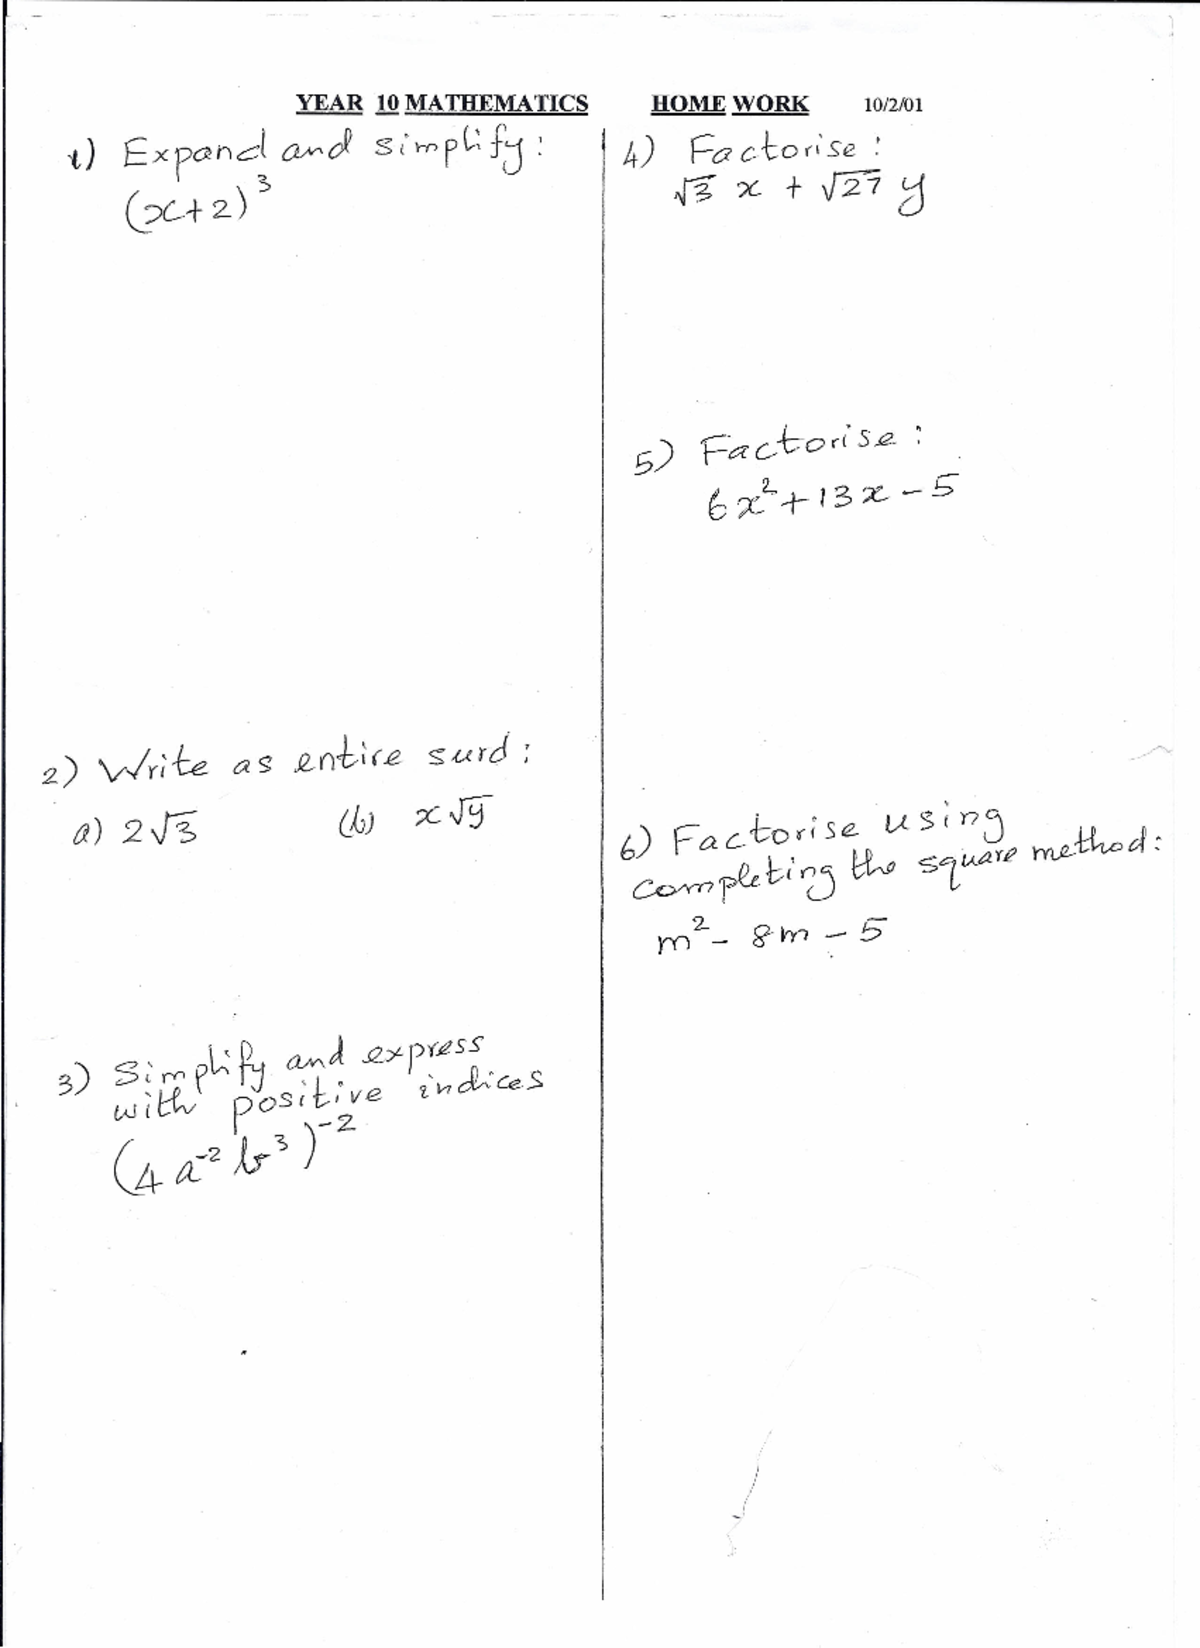 YEAR 10 MATHEMATICS HOME WORK 10/2/01
1) Expand and simplify:
(x+2)³
2) Write as entire surd:
a) 2√3 (b) x√y
3) Simplify and express
with positive indices
(4a⁻²b³)⁻²
4) Factorise:
√3 x + √27 y
5) Factorise:
6x²+13x-5
6) Factorise using
completing the square method:
m²- 8m - 5